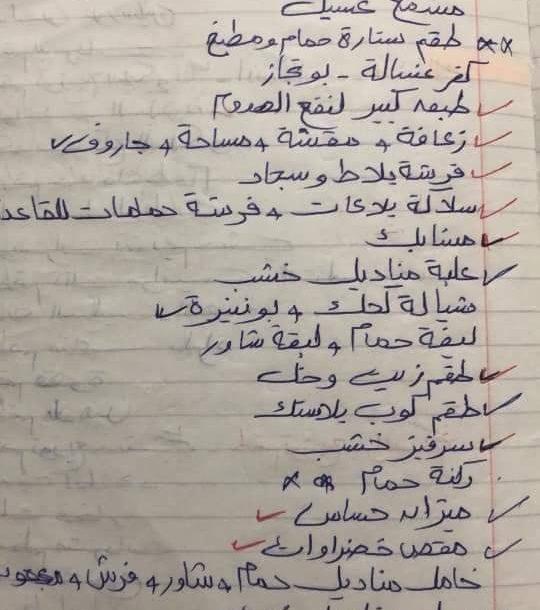 مسمع غسيل
طقم ستارة حمام ومطبخ
كفر غسالة - بوتجاز
طبق كبير لنقع الهدوم
زعافة + مقشة + مساحة + جاروف
فرشة بلاط وسجاد
سلاكة بلاعات + فرشة حمامات للقاعدة
مشابك
علبة مناديل خشب
شيالة لحلل + بونبيرة
ليفة حمام + ليفة شاور
طقم زيت وخل
طقم كوب بلاستك
سرفيز خشب
ركنة حمام
ميزان حساس
مقص خضراوات
حامل مناديل حمام + شاور + فرش + معجون